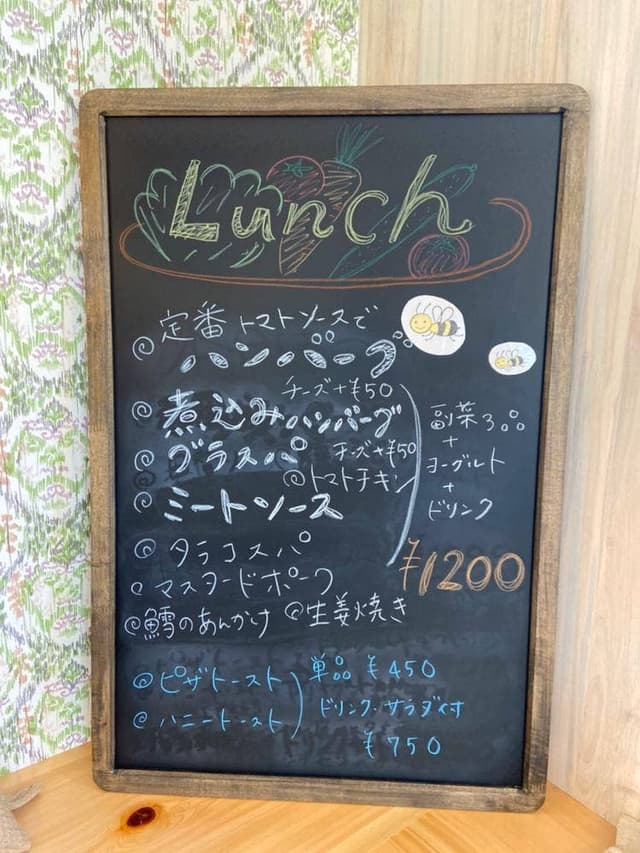 Lunch
定番トマトソースで
◎ハンバーグ
チーズ+¥50
◎煮込みハンバーグ
◎グラスパ チーズ+¥50
◎トマトチキン
◎ミートソース
◎タラコスパ
◎マスタードポーク
◎鱈のあんかけ ◎生姜焼き
副菜3品
+
ヨーグルト
+
ドリンク
¥1200
◎ピザトースト 単品 ¥450
◎ハニートースト ドリンク・サラダ付
¥750